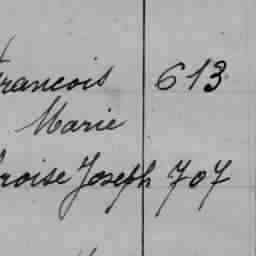 francois 613
Marie
roise Joseph 707